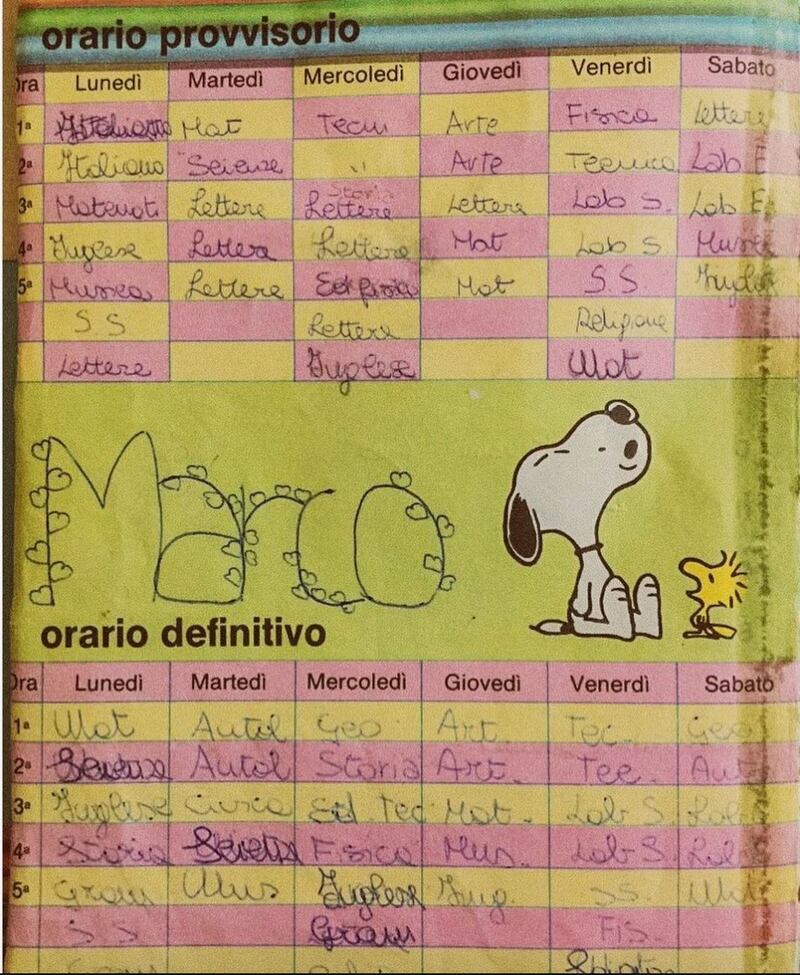 orario provvisorio
ra Lunedì Martedì Mercoledì Giovedì Venerdì Sabato
1ª Italiano Mat Tecn Arte Fisica Lettere
2ª Italiano "Scienze Arte Tecnica Lab E
Storia
3ª Matemati Lettere Lettere Lettere Lab S. Lab E
4ª Inglese Lettere Lettere Mat Lab S Music
5ª Musica Lettere Ed fisica Mat S.S. Ingles
S.S Lettere Religione
Lettere Inglese Mat
Marco
orario definitivo
Ora Lunedì Martedì Mercoledì Giovedì Venerdì Sabato
1ª Mat Autol Geo Art. Tec. Geo
2ª Scienze Autol Storia Art. Tec. Aut
3ª Inglese Civica Ed. Tec Mat. Lab S. Lab
4ª Storia Scienza Fisica Mus. Lab S. Lab
5ª Gram Mus Inglese Ing. SS. Mat
S S Gram Fis.